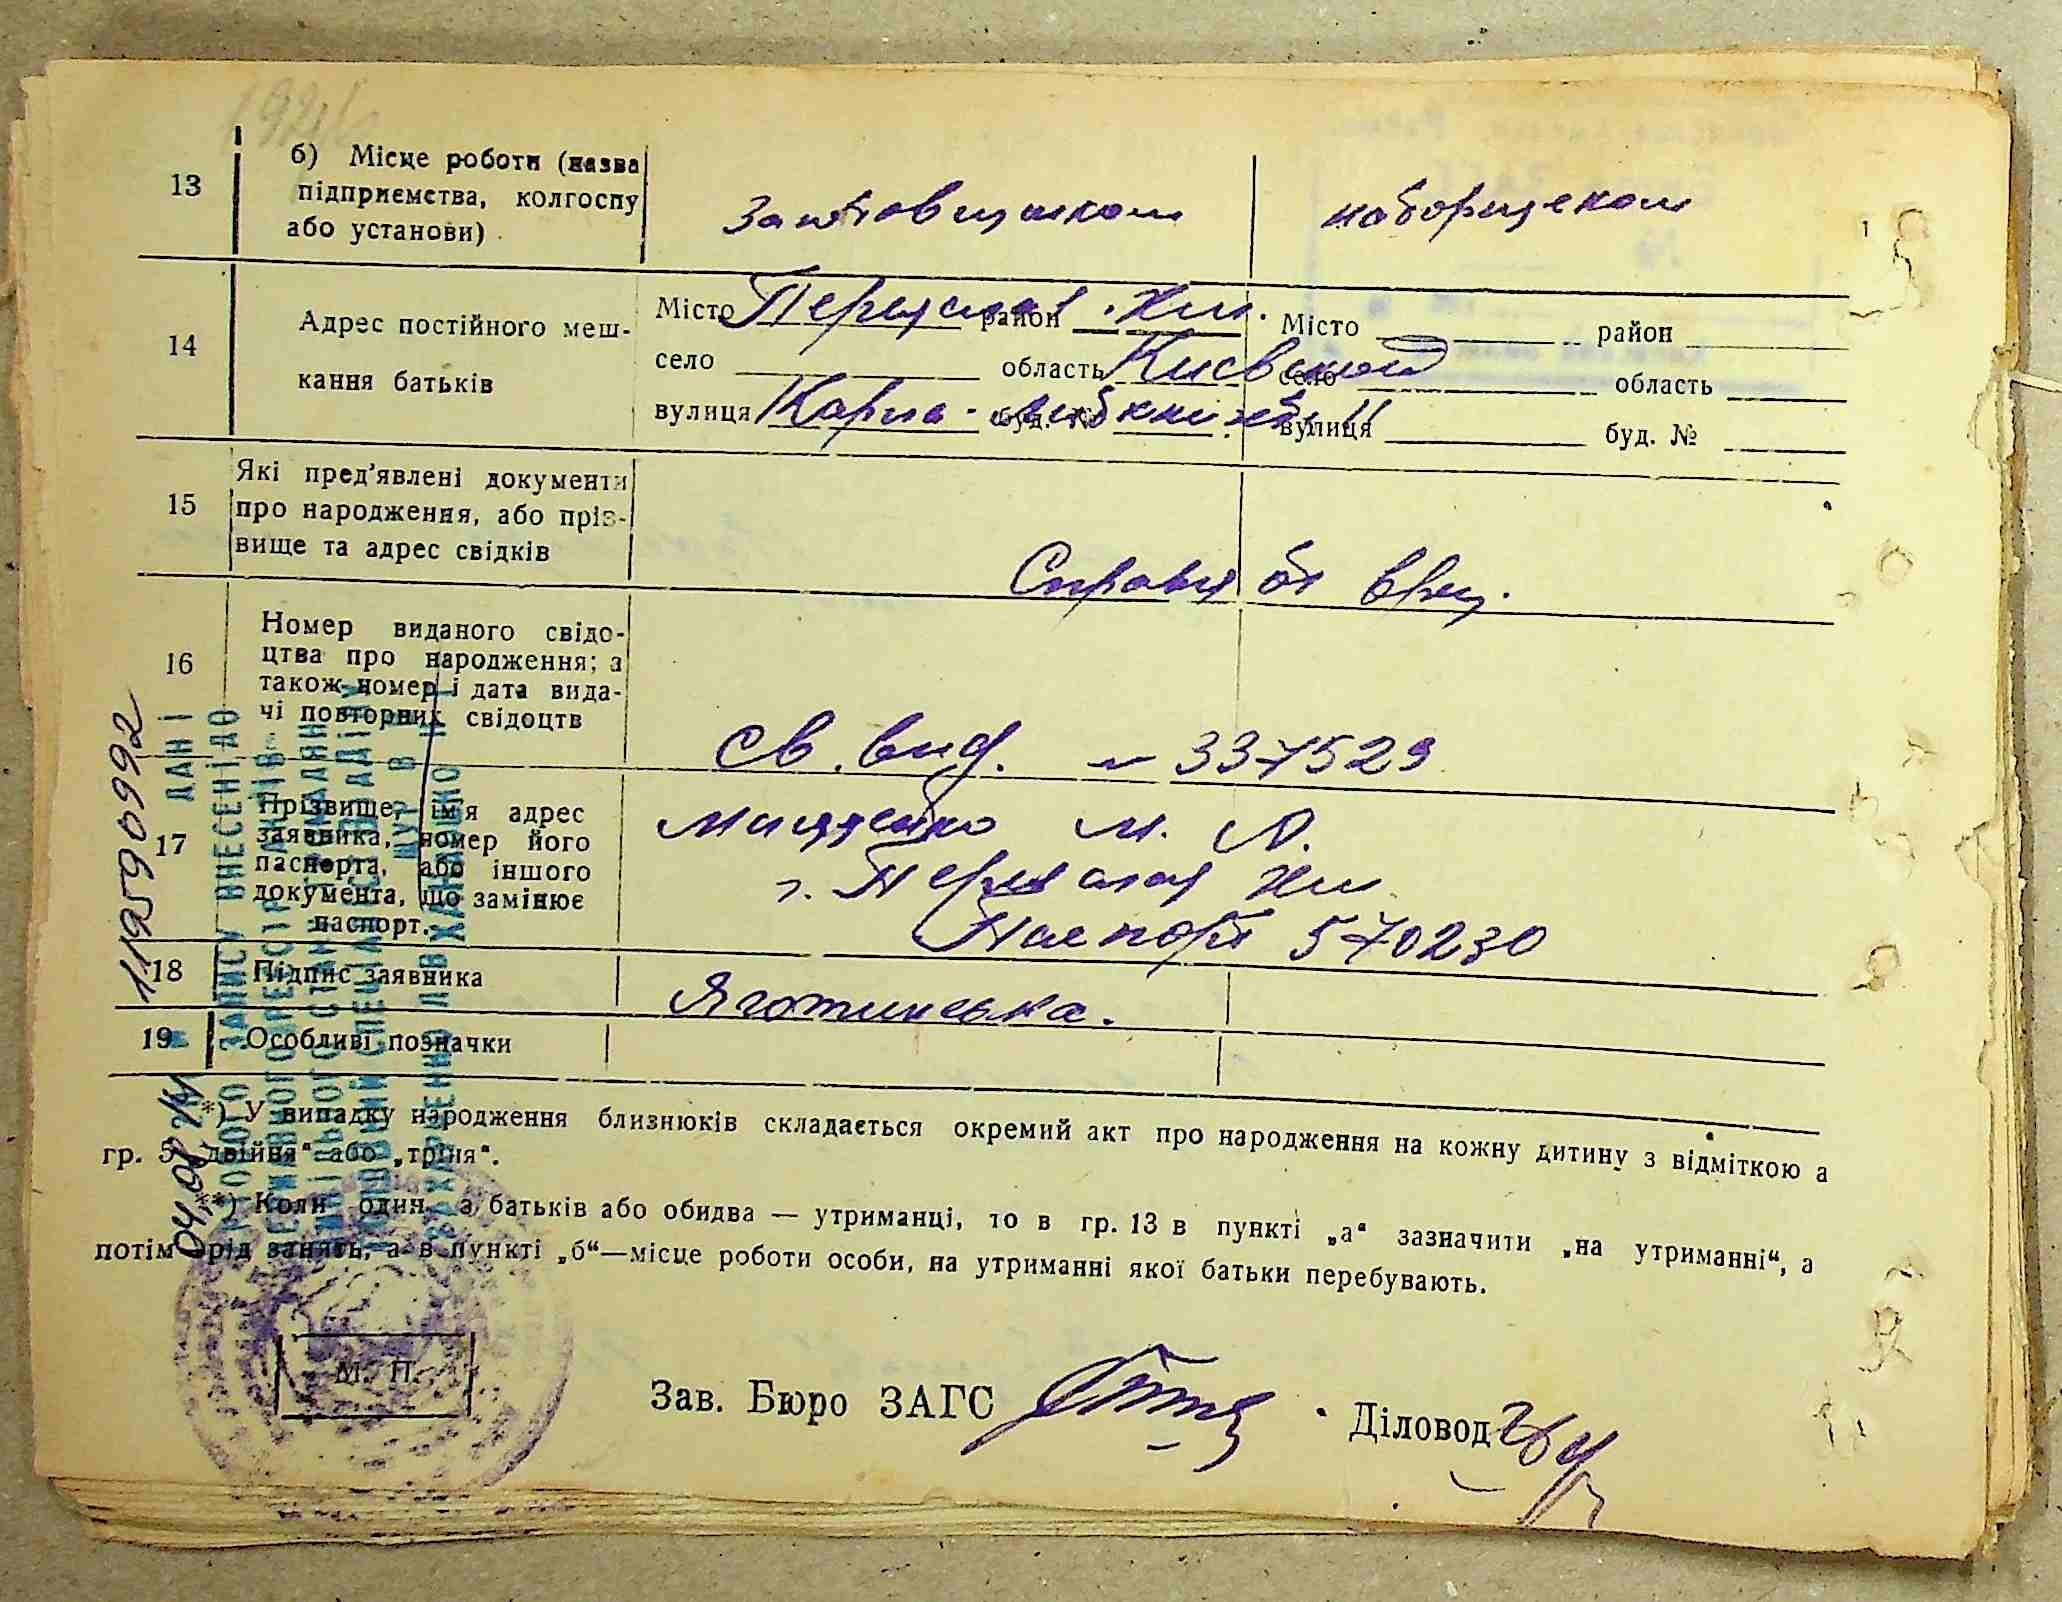 13
б) Місце роботи (назва
підприємства, колгоспу
або установи)
наборщеком
14
Адрес постійного меш-
кання батьків
Місто Переяслав район . Хм.
село область Киевской
вулиця Карла- буд. № 11
Місто район
село область
вулиця буд. №
15
Які пред'явлені документи
про народження, або пріз-
вище та адрес свідків
Справка от врач.
16
Номер виданого свідо-
цтва про народження; а
також номер і дата вида-
чі повторних свідоцтв
св. выд. № 337529
17
Прізвище, ім'я адрес
заявника, номер його
паспорта, або іншого
документа, що замінює
паспорт.
М. А.
г. Переяслав Хм
Паспорт 570230
18
Підпис заявника
Яготинська.
19
Особливі позначки
*) У випадку народження близнюків складається окремий акт про народження на кожну дитину з відміткою а
гр. 5 „двійня“ або „трійня“.
**) Коли один з батьків або обидва — утриманці, то в гр. 13 в пункті „а“ зазначити „на утриманні“, а
потім рід занять, а в пункті „б“—місце роботи особи, на утриманні якої батьки перебувають.
М. П.
Зав. Бюро ЗАГС
Діловод
ДАНІ
ЗАПИСУ ВНЕСЕНІ ДО